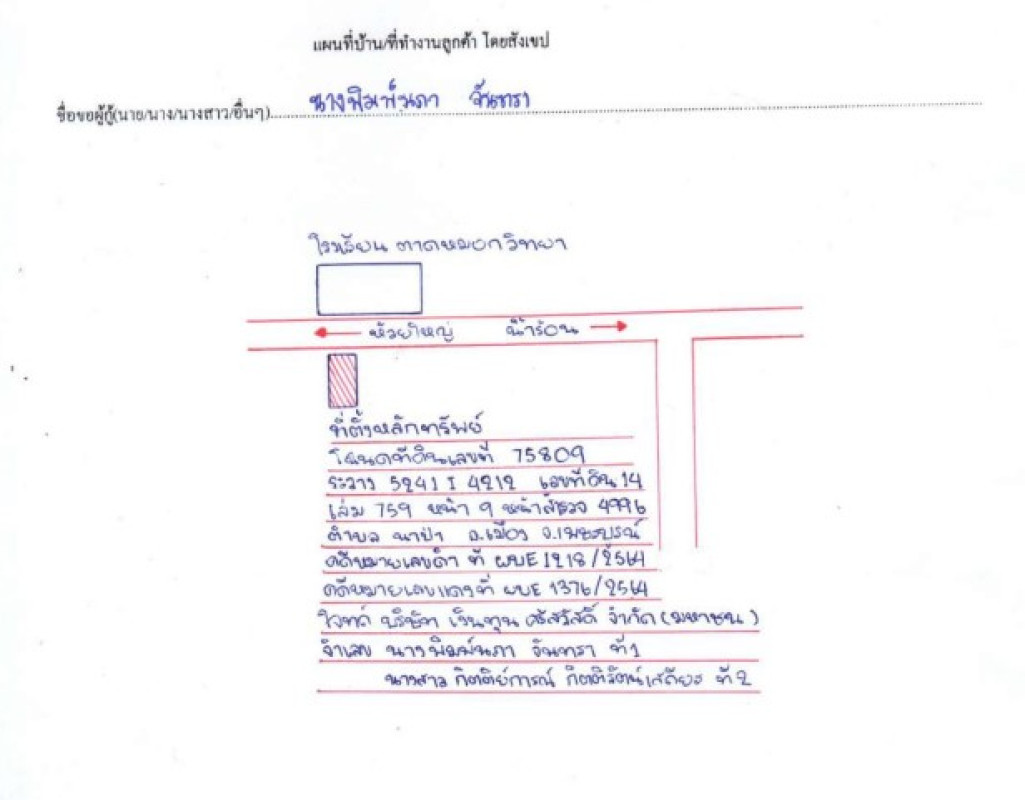 แผนที่บ้าน/ที่ทำงานลูกค้า โดยสังเขป
ชื่อขอผู้กู้(นาย/นาง/นางสาว/อื่นๆ)..... นางพิมพ์นภา จันทรา
โรงเรียน ตาดหมอกวิทยา
← ห้วยใหญ่ น้ำร้อน →
ที่ตั้งหลักทรัพย์
โฉนดที่ดินเลขที่ 75809
ระวาง 5241 I 4212 เลขที่ดิน 14
เล่ม 759 หน้า 9 หน้าสำรวจ 4996
ตำบล นาป่า อ.เมือง จ.เพชรบูรณ์
คดีหมายเลขดำ ที่ ผบE 1218/2564
คดีหมายเลขแดงที่ ผบE 1376/2564
โจทก์ บริษัท เงินทุน ศรีสวัสดิ์ จำกัด (มหาชน)
จำเลย นางพิมพ์นภา จันทรา ที่ 1
นางสาว กิตติย์การณ์ กิตติรัตน์เสถียร ที่ 2